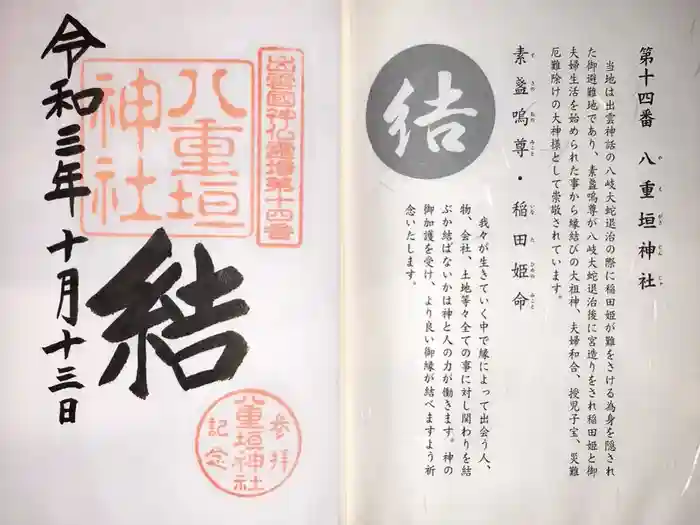 第十四番　八重垣神社
や え がき じん じゃ
当地は出雲神話の八岐大蛇退治の際に稲田姫が難をさける為身を隠され
た御避難地であり、素盞嗚尊が八岐大蛇退治後に宮造りをされ稲田姫と御
夫婦生活を始められた事から縁結びの大祖神、夫婦和合、授児子宝、災難
厄難除けの大神様として崇敬されています。
素盞嗚尊・稲田姫命
す さ の おの みこと いな た ひめの みこと
結
我々が生きていく中で縁によって出会う人、
物、会社、土地等々全ての事に対し関わりを結
ぶか結ばないかは神と人の力が働きます。神の
御加護を受け、より良い御縁が結べますよう祈
念いたします。
出雲國神仏霊場第十四番
八重垣
神社
結
参拝
八重垣神社
記念
令和三年十月十三日